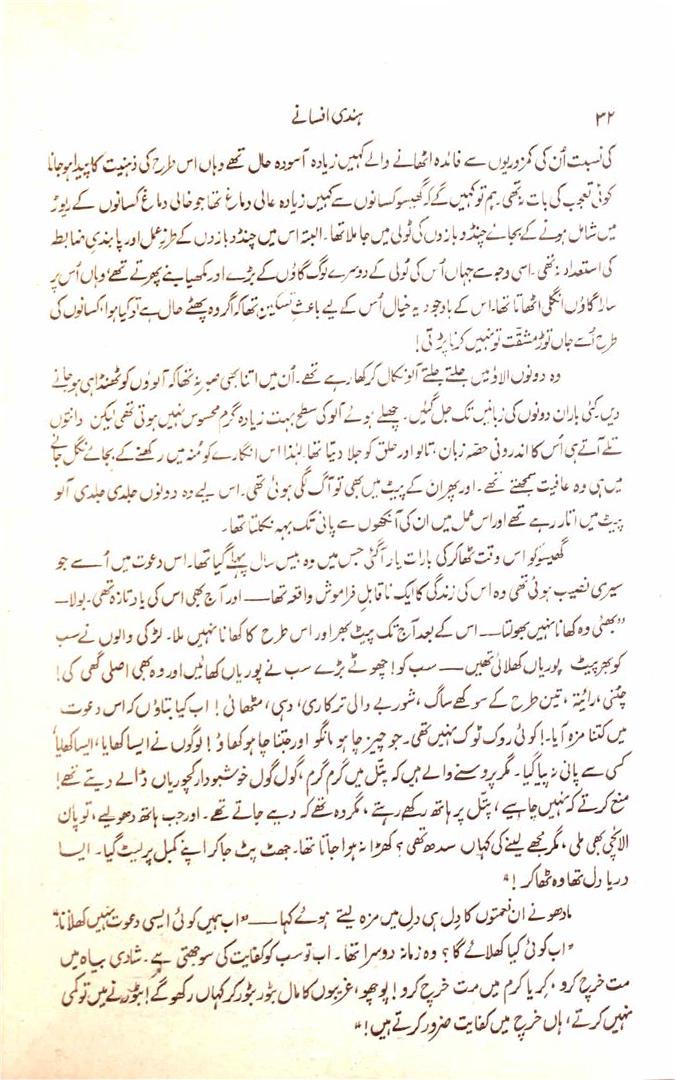 ۳۲
ہندی افسانے
کی نسبت اُن کی کمزوریوں سے فائدہ اٹھانے والے کہیں زیادہ آسودہ حال تھے وہاں اس طرح کی ذہنیت کا پیدا ہو جانا
کوئی تعجب کی بات نہ تھی۔ ہم تو کہیں گے کہ گھیسو کسانوں سے کہیں زیادہ عالی دماغ تھا جو خالی دماغ کسانوں کے ریوڑ
میں شامل ہونے کے بجائے چنڈو بازوں کی ٹولی میں جا ملا تھا۔ البتہ اس میں چنڈو بازوں کے طرزِ عمل اور پابندیِ ضابطہ
کی استعداد نہ تھی۔ اسی وجہ سے جہاں اُس کی ٹولی کے دوسرے لوگ گاؤں کے بڑے اور مکھیا بنے پھرتے تھے، وہاں اُس پر
سارا گاؤں انگلی اٹھاتا تھا۔ اس کے باوجود یہ خیال اُس کے لیے باعثِ تسکین تھا کہ اگر وہ پھٹے حال ہے تو کیا ہوا، کسانوں کی
طرح اُسے جاں توڑ مشقت تو نہیں کرنا پڑتی!
وہ دونوں الاؤ میں جلتے جلتے آلو نکال کر کھا رہے تھے۔ اُن میں اتنا بھی صبر نہ تھا کہ آلوؤں کو ٹھنڈا ہی ہو جانے
دیں۔ کئی بار ان دونوں کی زبانیں تک جل گئیں۔ چھلے ہوئے آلو کی سطح بہت زیادہ گرم محسوس نہیں ہوتی تھی لیکن دانتوں
تلے آتے ہی اُس کا اندرونی حصہ زبان، تالو اور حلق کو جلا دیتا تھا۔ لہٰذا اس انگارے کو مُنہ میں رکھنے کے بجائے نگل جانے
میں ہی وہ عافیت سمجھتے تھے۔ اور پھر ان کے پیٹ میں بھی تو آگ لگی ہوئی تھی۔ اس لیے وہ دونوں جلدی جلدی آلو
پیٹ میں اتار رہے تھے اور اس عمل میں ان کی آنکھوں سے پانی تک بہہ نکلتا تھا۔
گھیسو کو اس وقت ٹھاکر کی بارات یاد آگئی جس میں وہ بیس سال پہلے گیا تھا۔ اس دعوت میں اُسے جو
سیری نصیب ہوئی تھی وہ اس کی زندگی کا ایک ناقابلِ فراموش واقعہ تھا — اور آج بھی اس کی یاد تازہ تھی۔ بولا —
"بھئی وہ کھانا نہیں بھولتا — اس کے بعد آج تک پیٹ بھر اور اس طرح کا کھانا نہیں ملا۔ لڑکی والوں نے سب
کو بھر پیٹ پوریاں کھلائی تھیں — سب کو! چھوٹے بڑے سب نے پوریاں کھائیں اور وہ بھی اصلی گھی کی!
چٹنی، رائیتہ، تین طرح کے سوکھے ساگ، شوربے والی ترکاری، دہی، مٹھائی! اب کیا بتاؤں کہ اس دعوت
میں کتنا مزہ آیا۔! کوئی روک ٹوک نہیں تھی۔ جو چیز چاہو مانگو اور جتنا چاہو کھاؤ! لوگوں نے ایسا کھایا، ایسا کھایا
کسی سے پانی نہ پیا گیا۔ مگر پروسنے والے ہیں کہ پتّل میں گرم گرم، گول گول خوشبودار کچوریاں ڈالے دیتے تھے!
منع کرتے کہ نہیں چاہیے، پتّل پر ہاتھ رکھے رہتے، مگر وہ تھے کہ دیے جاتے تھے۔ اور جب ہاتھ دھو لیے، تو پان
الائچی بھی ملی، مگر مجھے لینے کی کہاں سدھ تھی؟ کھڑا نہ ہوا جاتا تھا۔ جھٹ پٹ جا کر اپنے کمبل پر لیٹ گیا۔ ایسا
دریا دل تھا وہ ٹھاکر!"
مادھو نے ان نعمتوں کا دِل ہی دِل میں مزہ لیتے ہوئے کہا — "اب ہمیں کوئی ایسی دعوت نہیں کھلاتا۔"
"اب کوئی کیا کھلائے گا؟ وہ زمانہ دوسرا تھا۔ اب تو سب کو کفایت کی سوجھتی ہے۔ شادی بیاہ میں
مت خرچ کرو، کریا کرم میں مت خرچ کرو! پوچھو، غریبوں کا مال بٹور بٹور کر کہاں رکھو گے! بٹورنے میں تو کمی
نہیں کرتے، ہاں خرچ میں کفایت ضرور کرتے ہیں!"